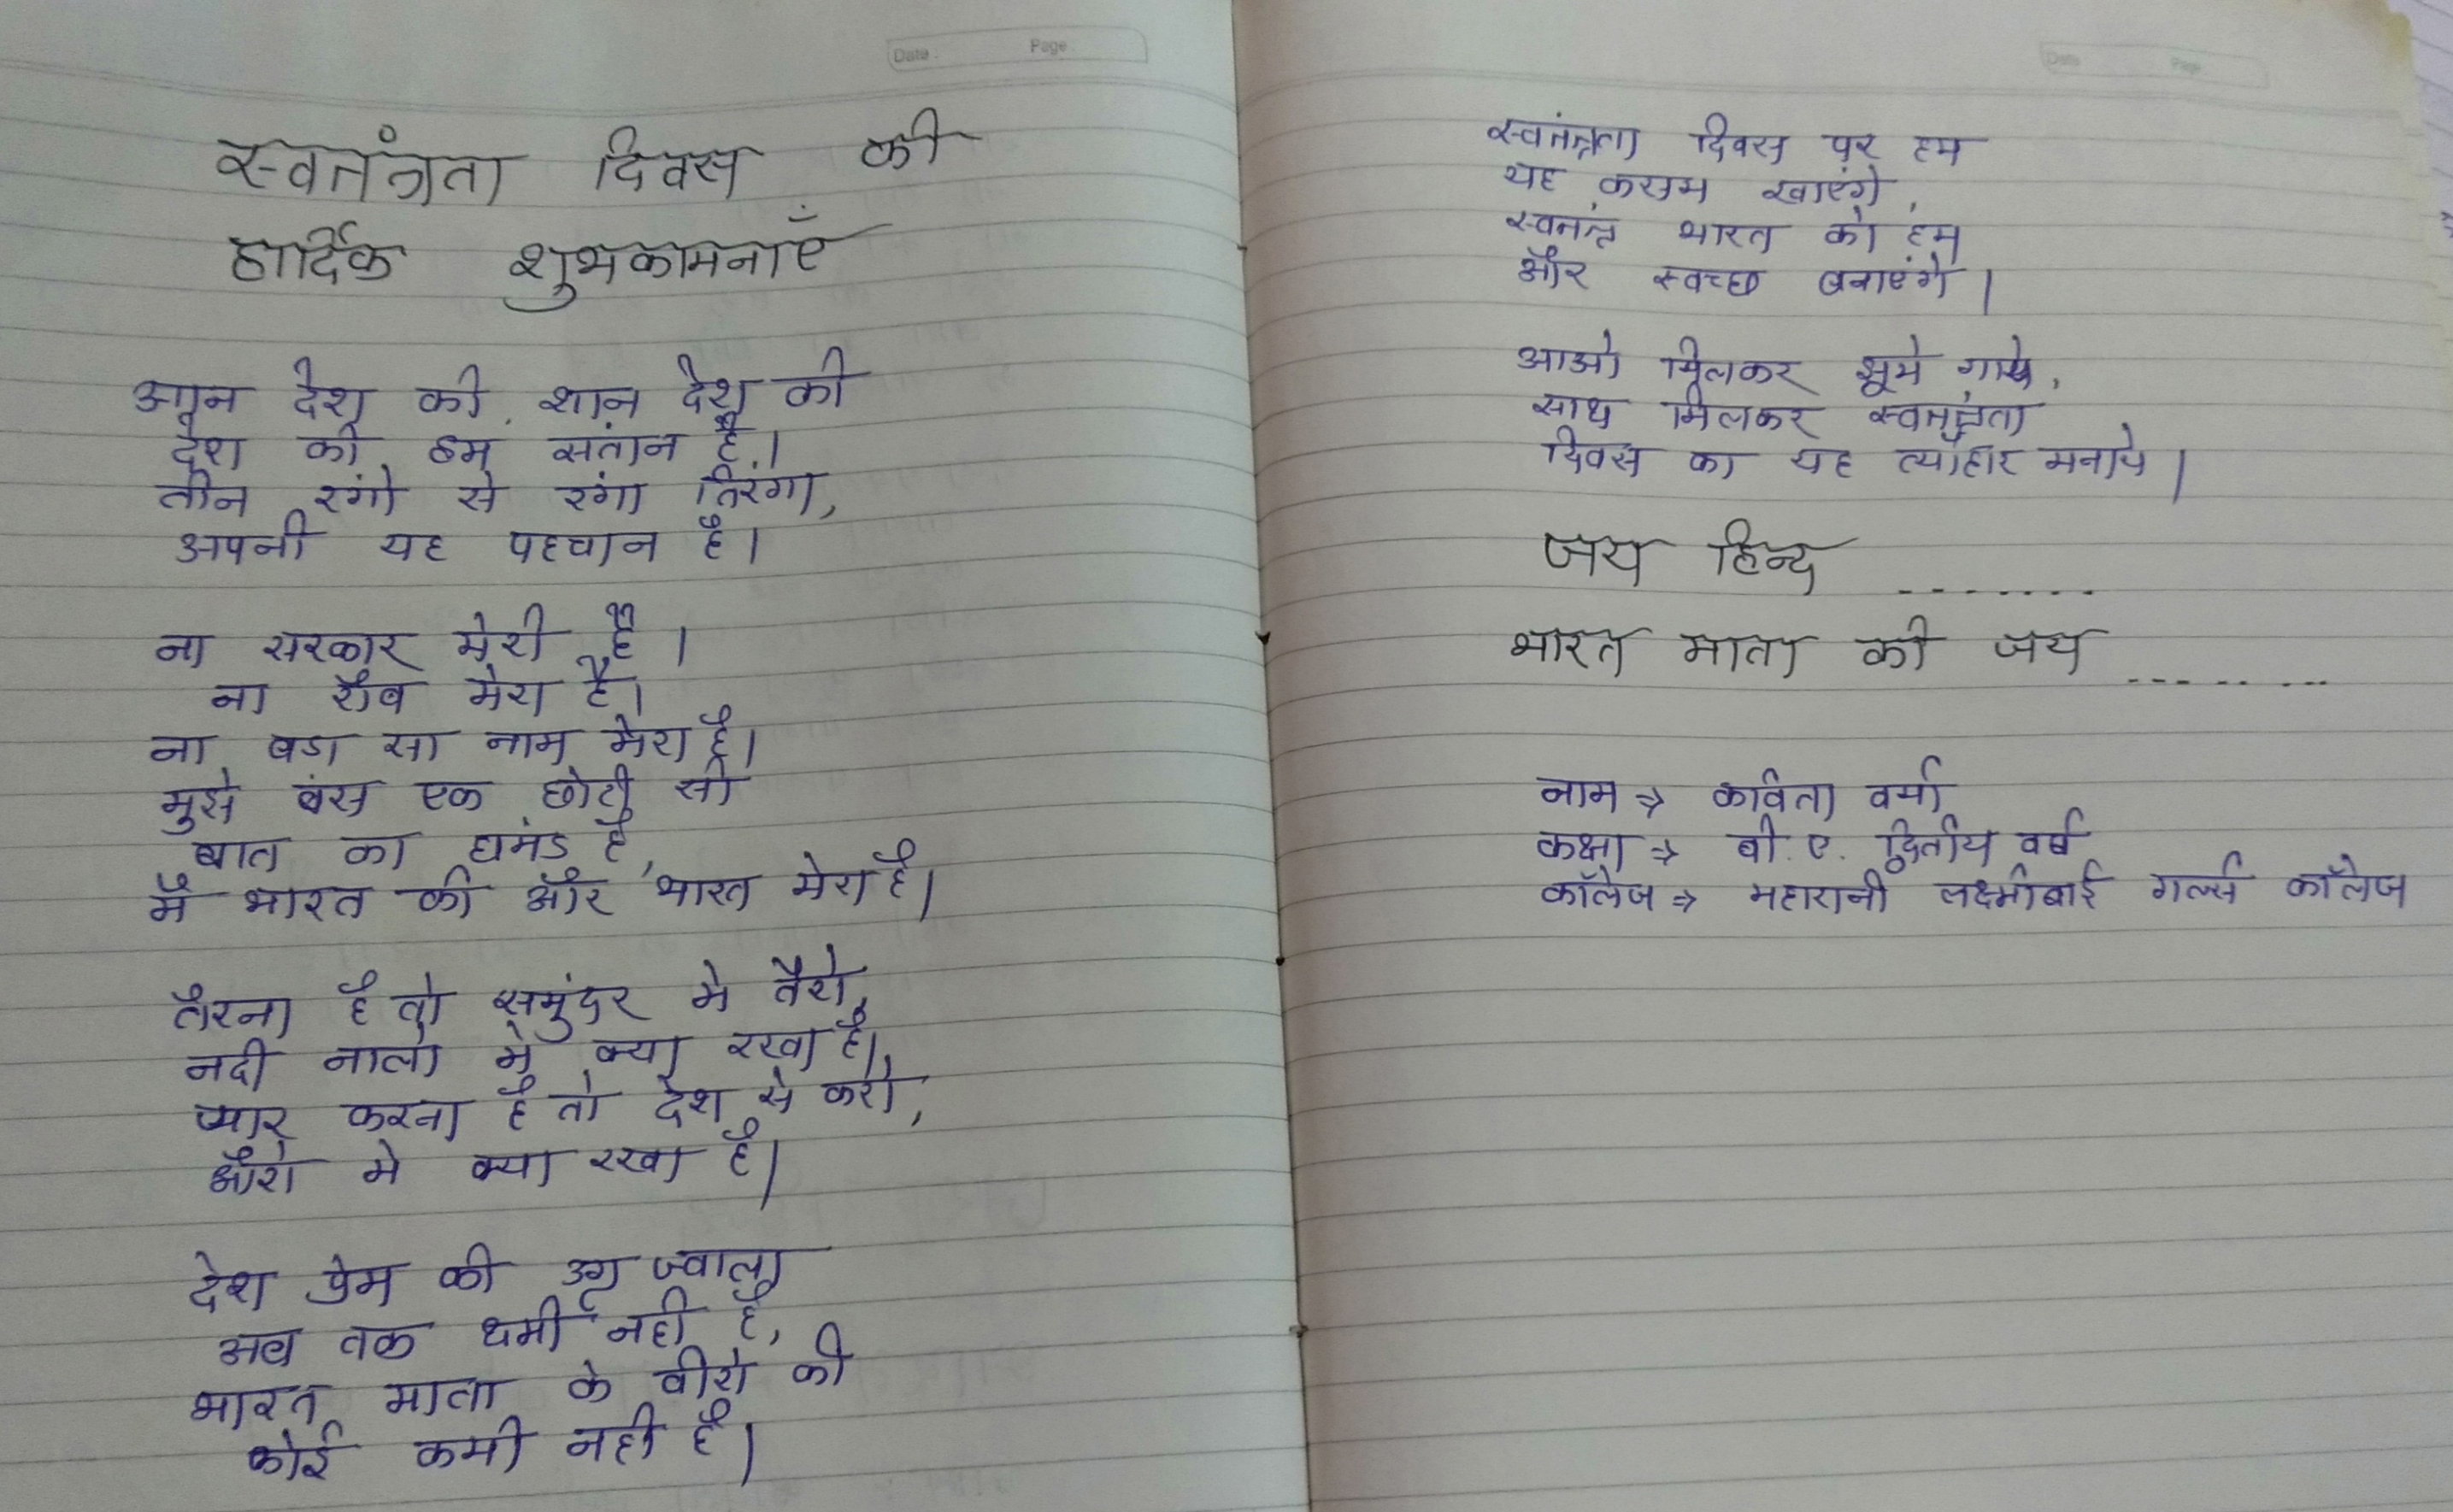 Date : Page
स्वतंत्रता दिवस की
हार्दिक शुभकामनाएँ
आन देश की शान देश की
देश की हम संतान है।
तीन रंगो से रंगा तिरंगा,
अपनी यह पहचान है।
ना सरकार मेरी है।
ना रौब मेरा है।
ना बडा सा नाम मेरा है।
मुझे बस एक छोटी सी
बात का घमंड है,
मै भारत की और भारत मेरा है।
तैरना है तो समुंदर मे तैरो,
नदी नालो मे क्या रखा है।,
प्यार करना है तो देश से करो,
औरो मे क्या रखा है।
देश प्रेम की उग्र ज्वाला
अब तक थमी नही है,
भारत माता के वीरो की
कोई कमी नही है।
Date Page
स्वतंत्रता दिवस पर हम
यह कसम खाएंगे,
स्वतंत्र भारत को हम
और स्वच्छ बनाएंगे।
आओ मिलकर झूमे गाये,
साथ मिलकर स्वतंत्रता
दिवस का यह त्यौहार मनाये।
जय हिन्द .......
भारत माता की जय ........
नाम ⇒ कविता वर्मा
कक्षा ⇒ बी. ए. द्वितीय वर्ष
कॉलेज ⇒ महारानी लक्ष्मीबाई गर्ल्स कॉलेज